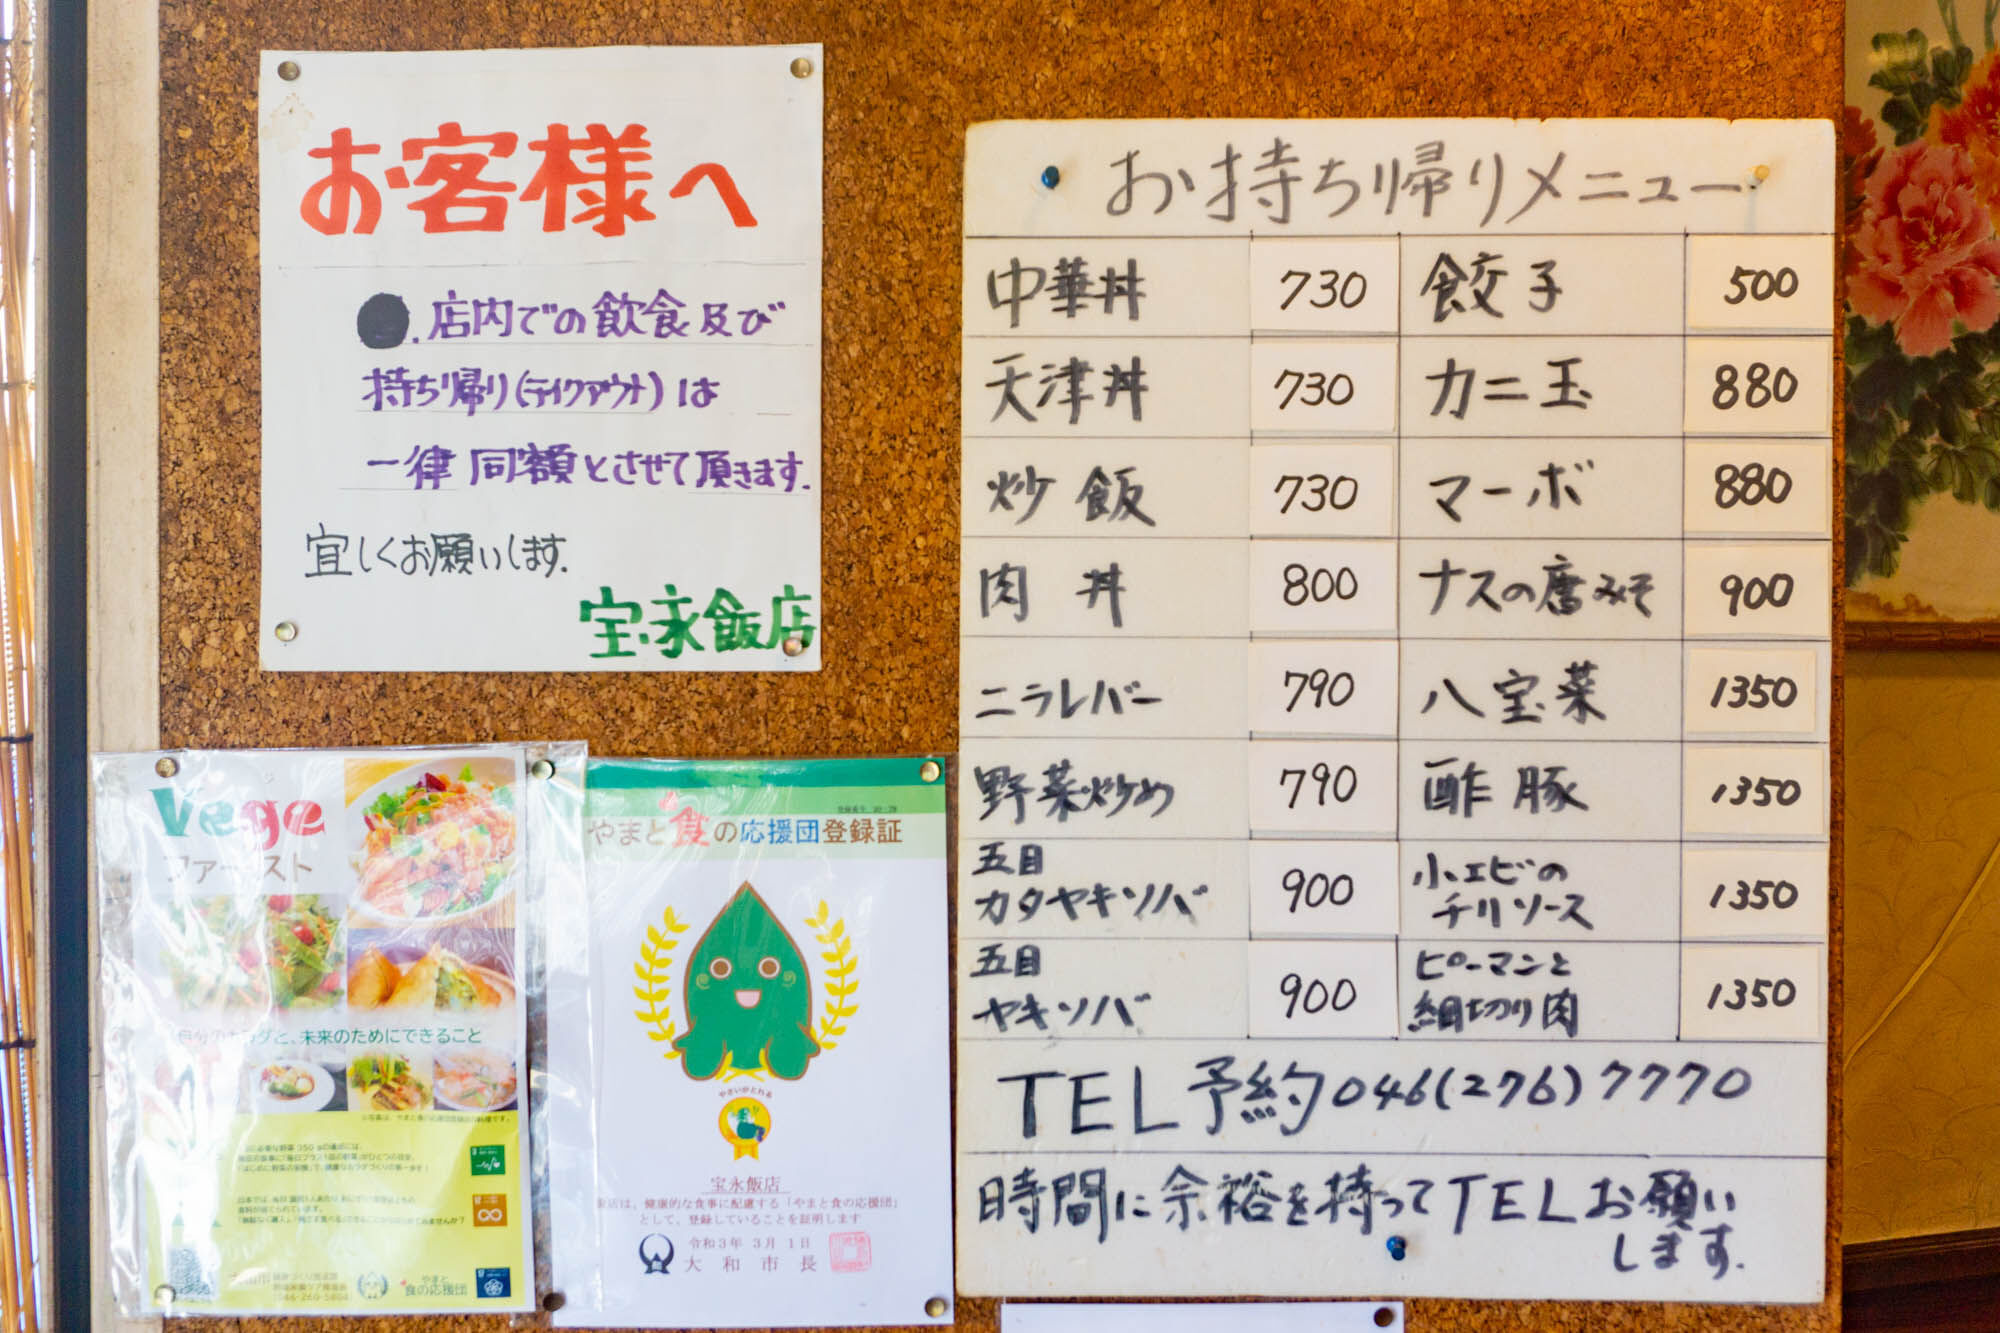 お客様へ
店内での飲食及び
持ち帰り(テイクアウト)は
一律同額とさせて頂きます.
宜しくお願いします.
宝永飯店
お持ち帰りメニュー
中華丼 730 餃子 500
天津丼 730 カニ玉 880
炒飯 730 マーボ 880
肉丼 800 ナスの唐みそ 900
ニラレバー 790 八宝菜 1350
野菜炒め 790 酢豚 1350
五目
カタヤキソバ 900
小エビの
チリソース 1350
五目
ヤキソバ 900
ピーマンと
細切り肉 1350
TEL予約046(276)7770
時間に余裕を持ってTELお願い
します.
Vege
ファースト
自分のカラダと、未来のためにできること
046-260-5804
やまと
食の応援団
やまと食の応援団登録証
やさいがとれる
宝永飯店
店は、健康的な食事に配慮する「やまと食の応援団」
として、登録していることを証明します
令和3年 3月 1日
大和市長